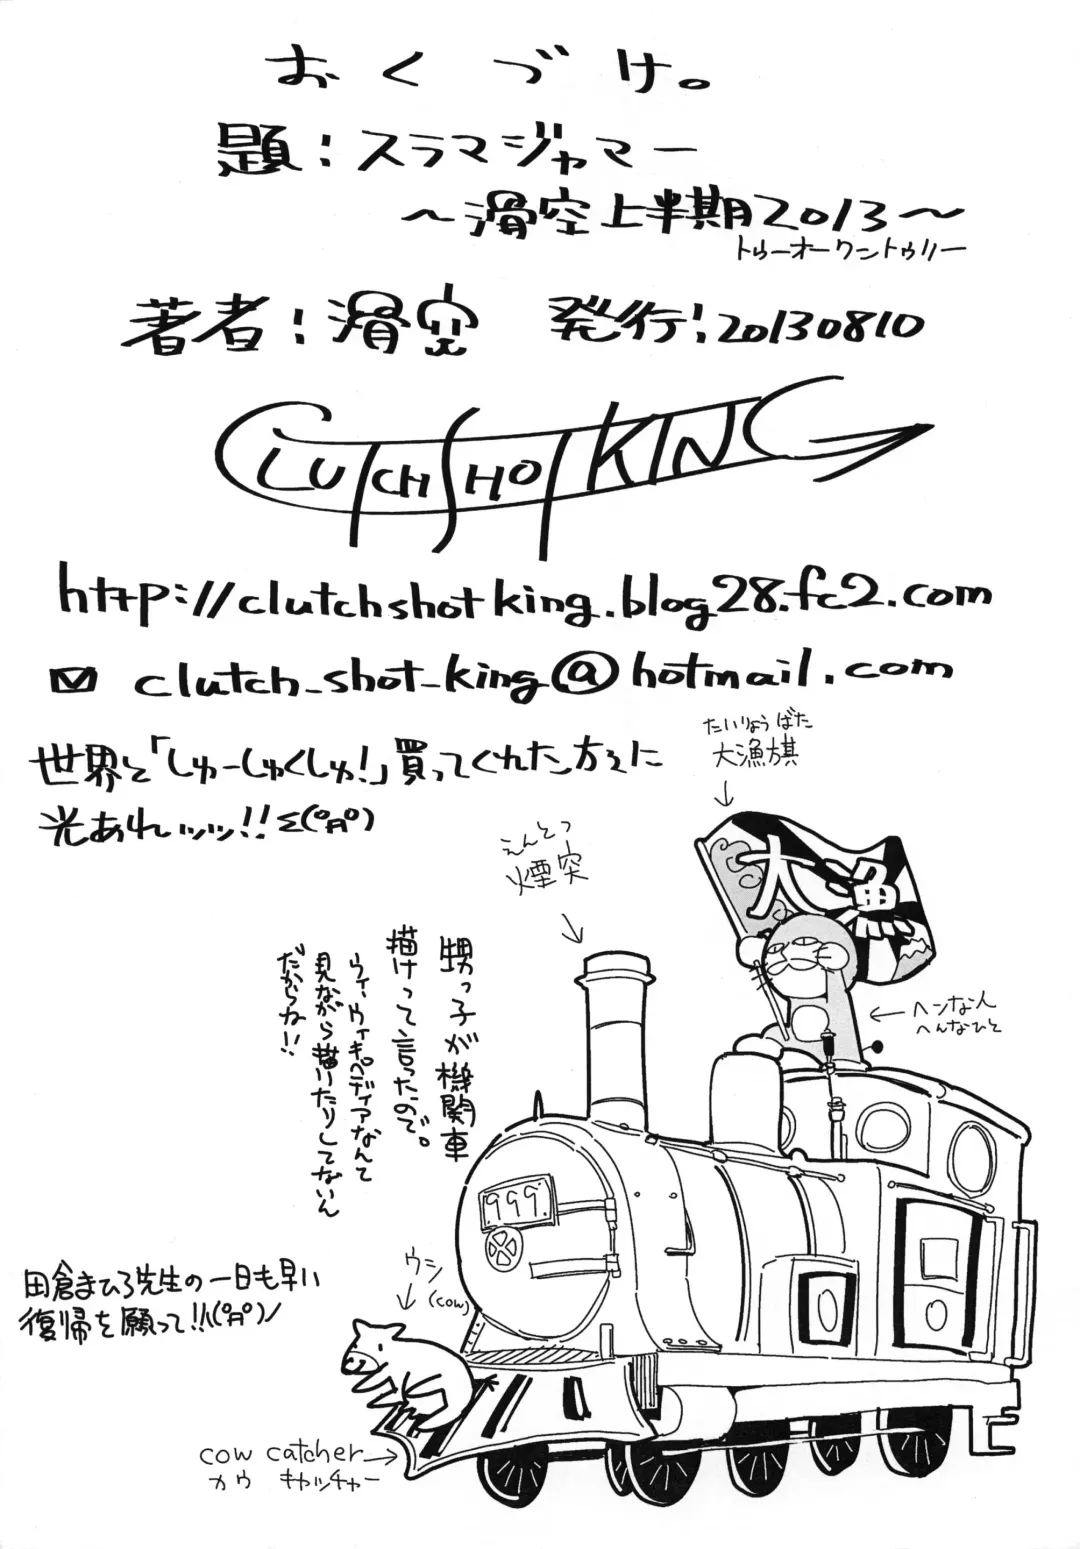 おくづけ。
題:スラマジャマー
〜滑空上半期2013〜
トゥーオーワントゥリー
著者:滑空 発行:20130810
CLUTCH SHOT KING
http://clutchshotking.blog28.fc2.com
clutch_shot_king@hotmail.com
世界と「しゅーしゅくしゅ!」買ってくれた方々に
光あれッッッ!!Σ(°Д°)
たいりょうばた
大漁旗
えんとつ
煙突
大漁
ヘンな人
へんなひと
甥っ子が機関車
描けって言ったので。
ウィ、ウィキペディアなんて
見ながら描いたりしてないん
だからね!!
999
田倉まひろ先生の一日も早い
復帰を願って!!\(°Д°)/
ウシ
(cow)
cow catcher
カウ キャッチャー